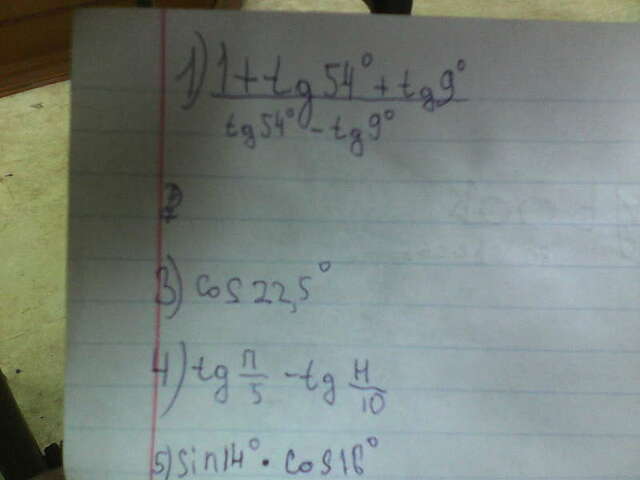 1) 1+tg54°+tg9°
tg54°-tg9°
3) cos22,5°
4) tg π/5 - tg π/10
5) sin14° · cos16°